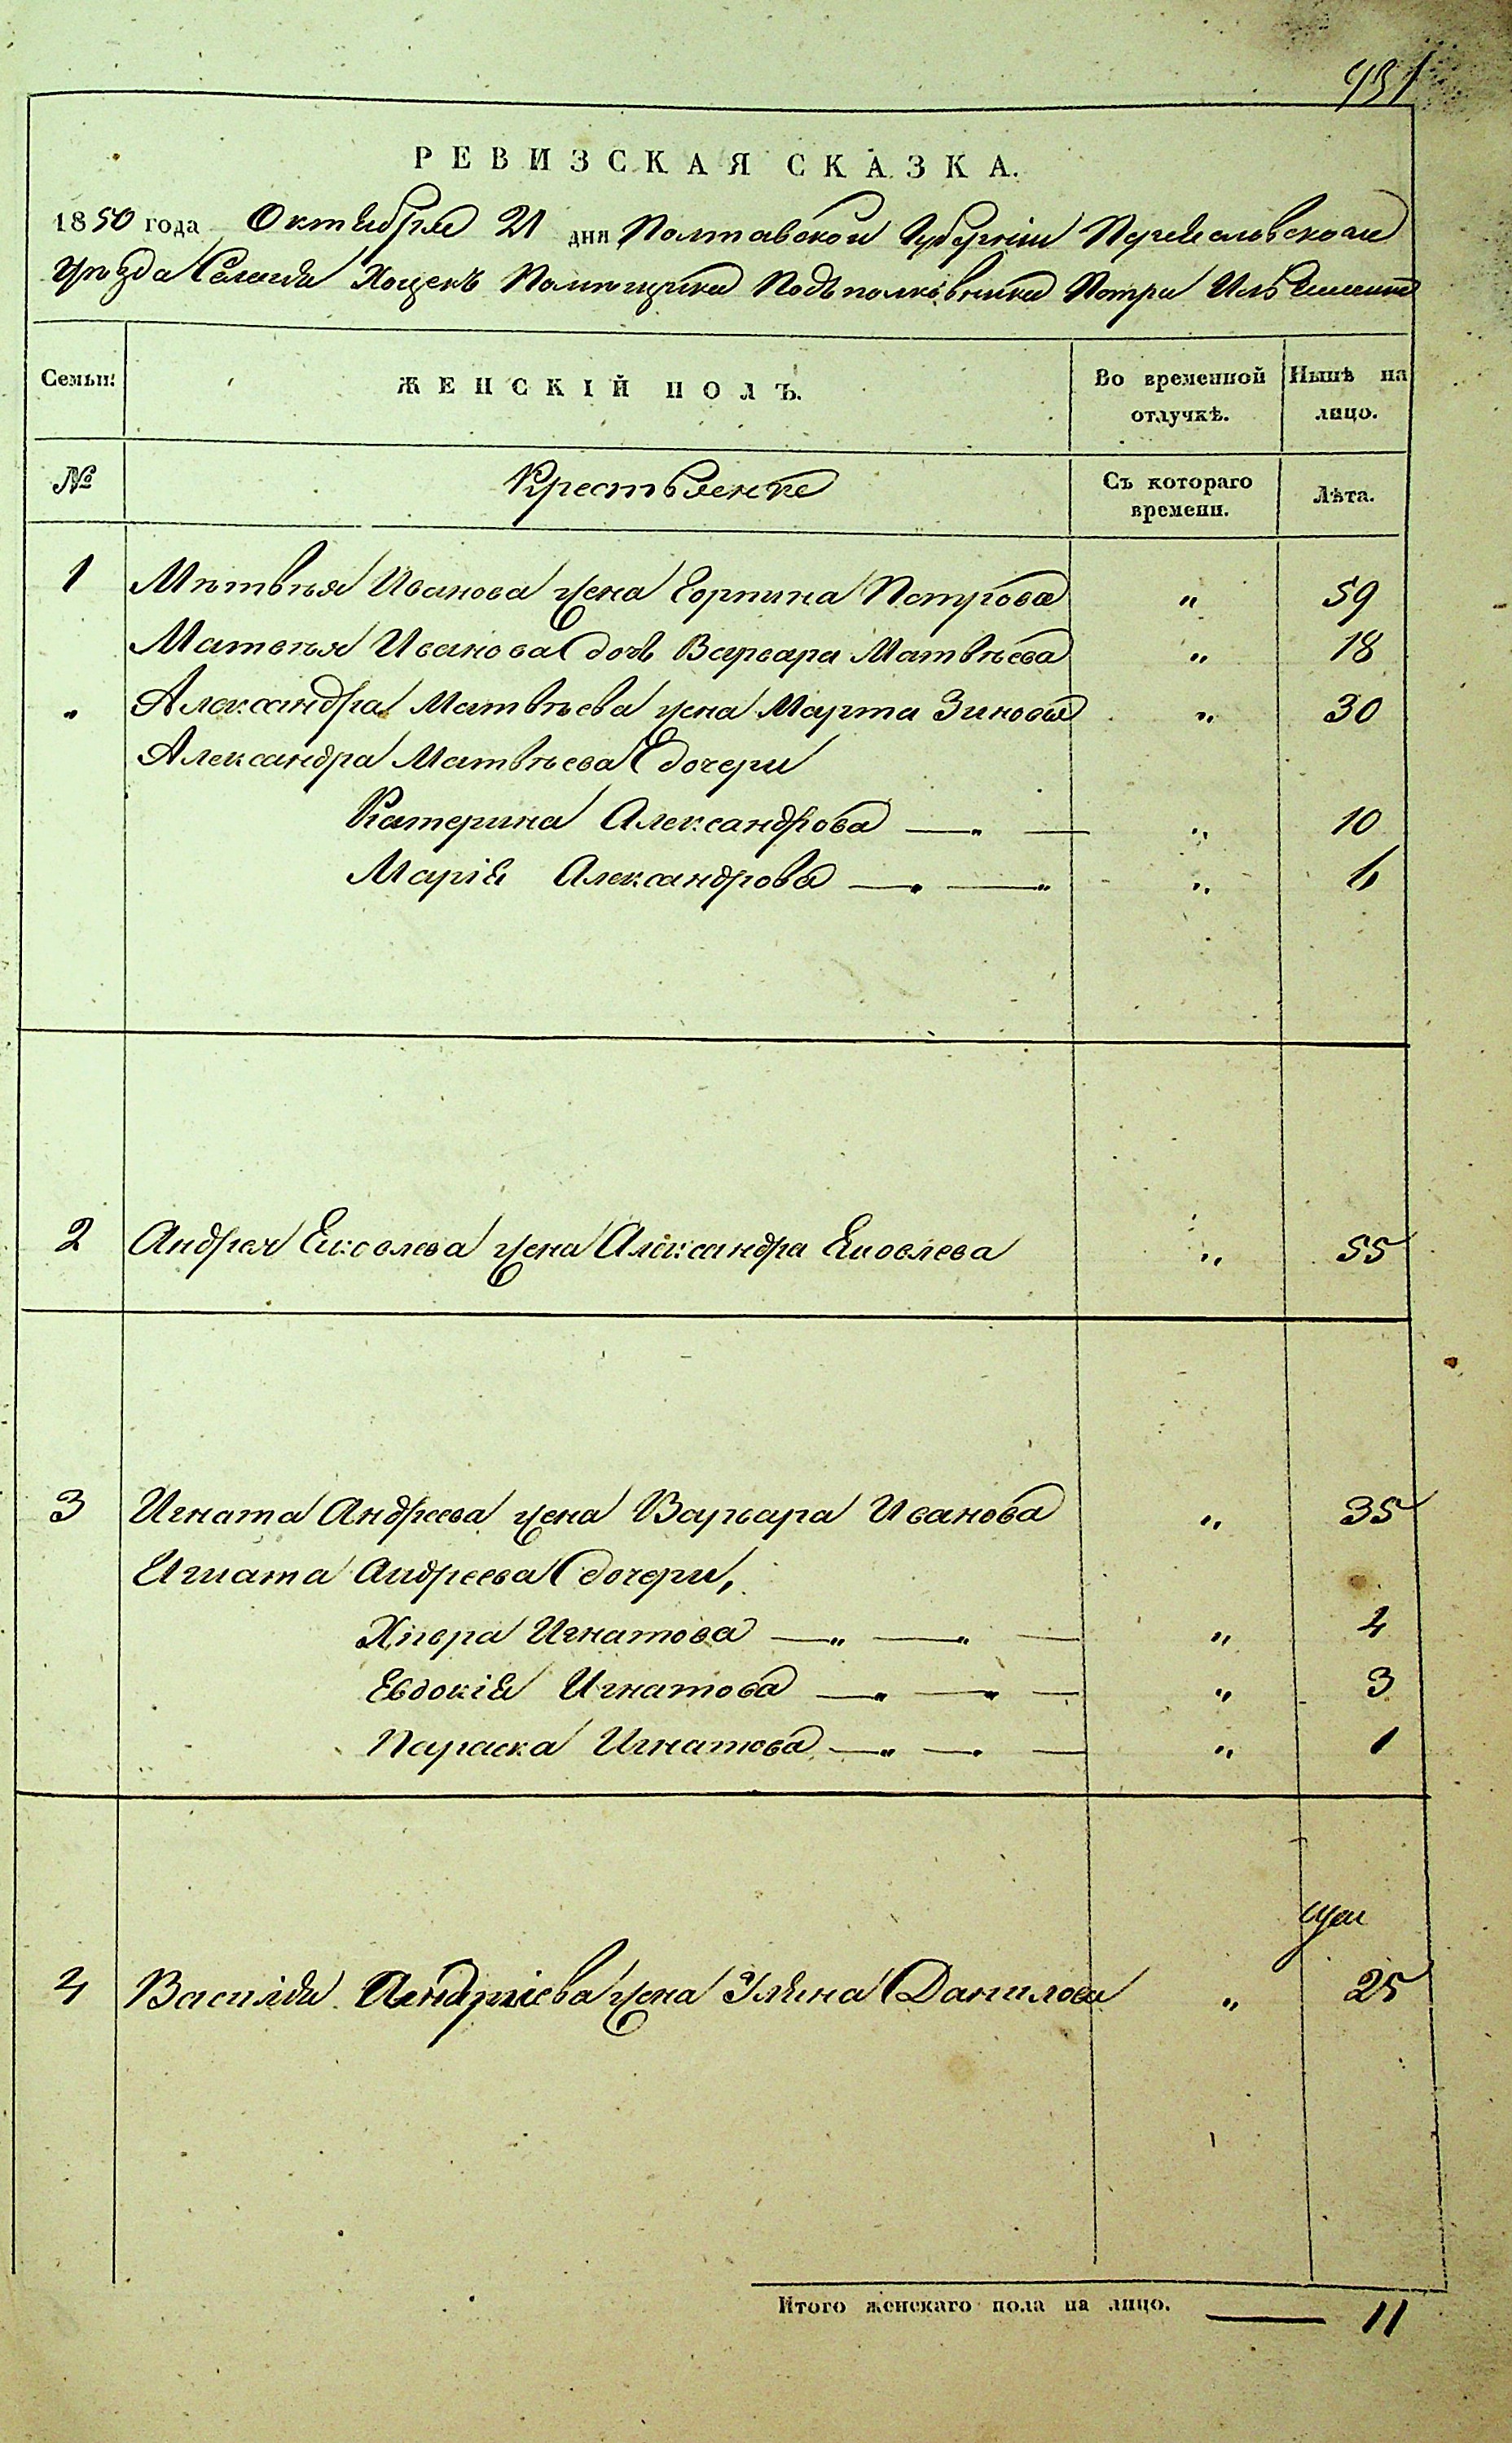 431
РЕВИЗСКАЯ СКАЗКА.
1850 года Октября 21 дня Полтавской Губернии Переяславскаго
Уѣзда Селенія Хоцекъ Помѣщика Подъполковника Петра
Семьи: ЖЕНСКІЙ ПОЛЪ. Во временной отлучкѣ. Нынѣ на лицо.
№ Крестьянке Съ котораго времени. Лѣта.
1 Матвѣя Иванова жена Горпина Петрова „ 59
Матвѣя Иванова дочь Варвара Матвѣева „ 18
„ Александра Матвѣева жена Марта Зиновья „ 30
Александра Матвѣева дочери
Катерина Александрова — „ — „ 10
Марія Александрова — „ — „ „ 6
2 Андрея Яковлева жена Александра Яковлева „ 55
3 Игната Андреева жена Варвара Иванова „ 35
Игната Андреева дочери,
Хивра Игнатова — „ — „ — „ 4
Евдокія Игнатова — „ — „ — „ 3
Параска Игнатова — „ — „ — „ 1
4 Василія Андріева жена Уляна Данилова „ 25
Итого женскаго пола на лицо. — 11